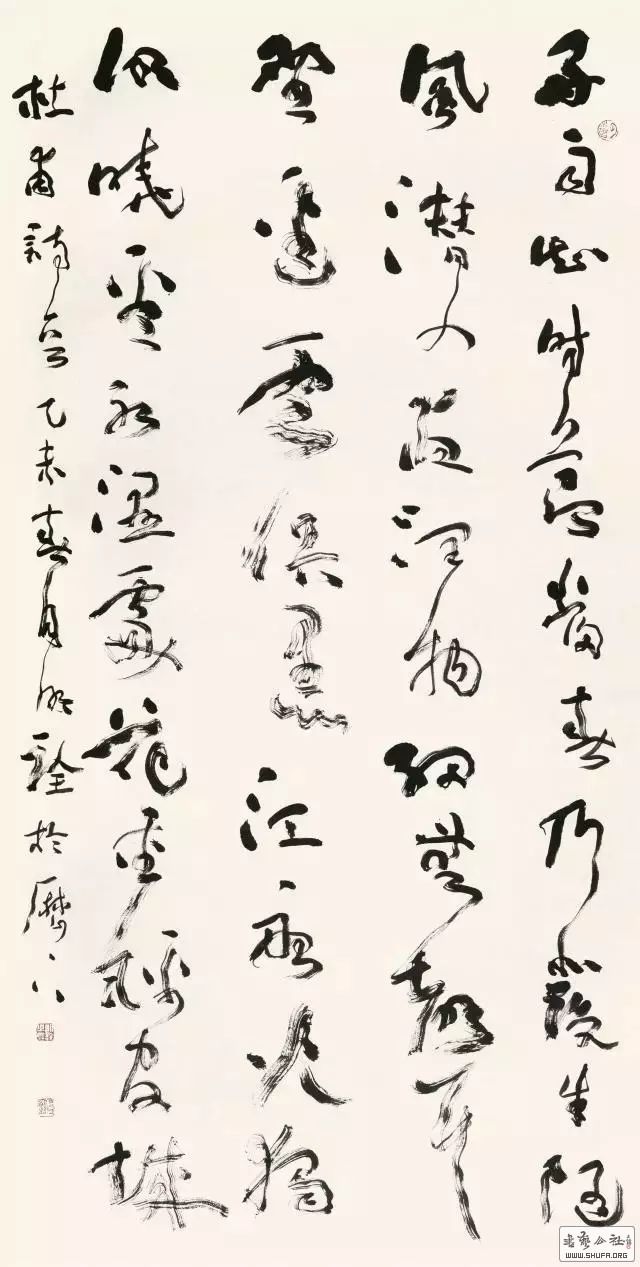 好雨知時節當春乃發生隨
風潛入夜潤物細無聲
野逕雲俱黑江船火獨
明曉看紅濕處花重錦官城
杜甫詩 乙未春月明詮於歷下
書藝公社
WWW.SHUFA.ORG